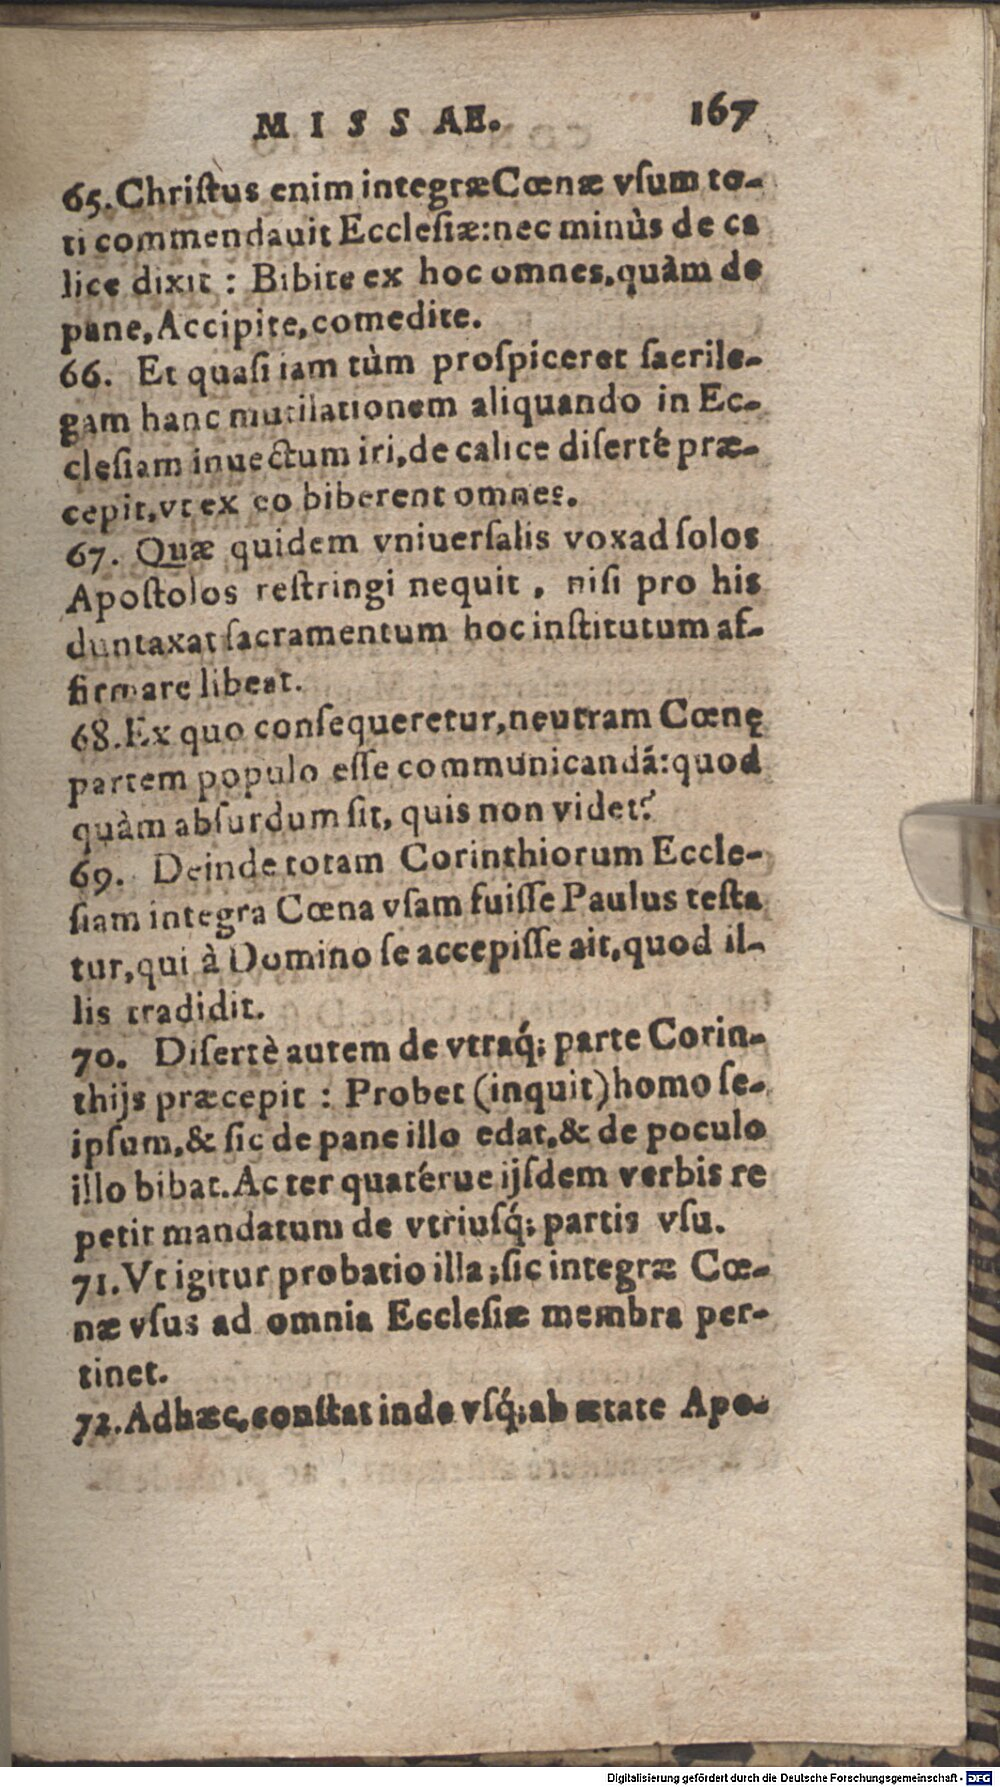 MISSAE. 167
65. Chriſtus enim integræ Cœnæ vſum to-
ti commendauit Eccleſiæ: nec minùs de ca
lice dixit : Bibite ex hoc omnes, quàm de
pane, Accipite, comedite.
66. Et quaſi iam tùm proſpiceret ſacrile-
gam hanc mutilationem aliquando in Ec-
cleſiam inuectum iri, de calice diſerté præ-
cepit, vt ex eo biberent omnes.
67. Quæ quidem vniuerſalis vox ad ſolos
Apoſtolos reſtringi nequit, niſi pro his
duntaxat ſacramentum hoc inſtitutum af-
firmare libeat.
68. Ex quo conſequeretur, neutram Cœnę
partem populo eſſe communicandã: quod
quàm abſurdum ſit, quis non videt?
69. Deinde totam Corinthiorum Eccle-
ſiam integra Cœna vſam fuiſſe Paulus teſta
tur, qui à Domino ſe accepiſſe ait, quod il-
lis tradidit.
70. Diſertè autem de vtraq́; parte Corin-
thijs præcepit : Probet (inquit) homo ſe-
ipſum, & ſic de pane illo edat, & de poculo
illo bibat. Ac ter quatérue ijſdem verbis re
petit mandatum de vtriuſq́; partis vſu.
71. Vt igitur probatio illa; ſic integræ Cœ-
næ vſus ad omnia Eccleſiæ membra per-
tinet.
72. Adhæc, conſtat inde vſq́; ab ætate Apo-
Digitalisierung gefördert durch die Deutsche Forschungsgemeinschaft - DFG